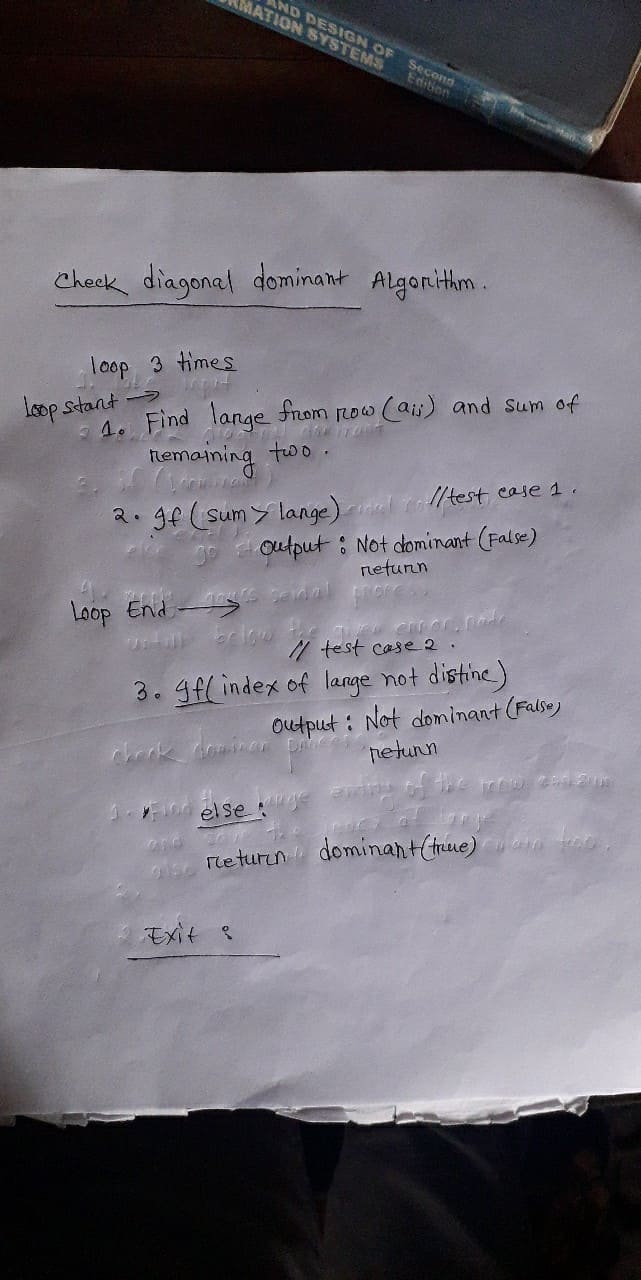 AND DESIGN OF
RMATION SYSTEMS
Second
Edition
Check diagonal dominant Algorithm.
loop 3 times
Loop start →
1. Find large from row (aij) and sum of
remaining two.
2. If (sum > large) //test case 1.
output : Not dominant (False)
return
Loop End →
// test case 2.
3. If( index of large not distinc)
output : Not dominant (False)
return
else :
return dominant(true)
Exit :